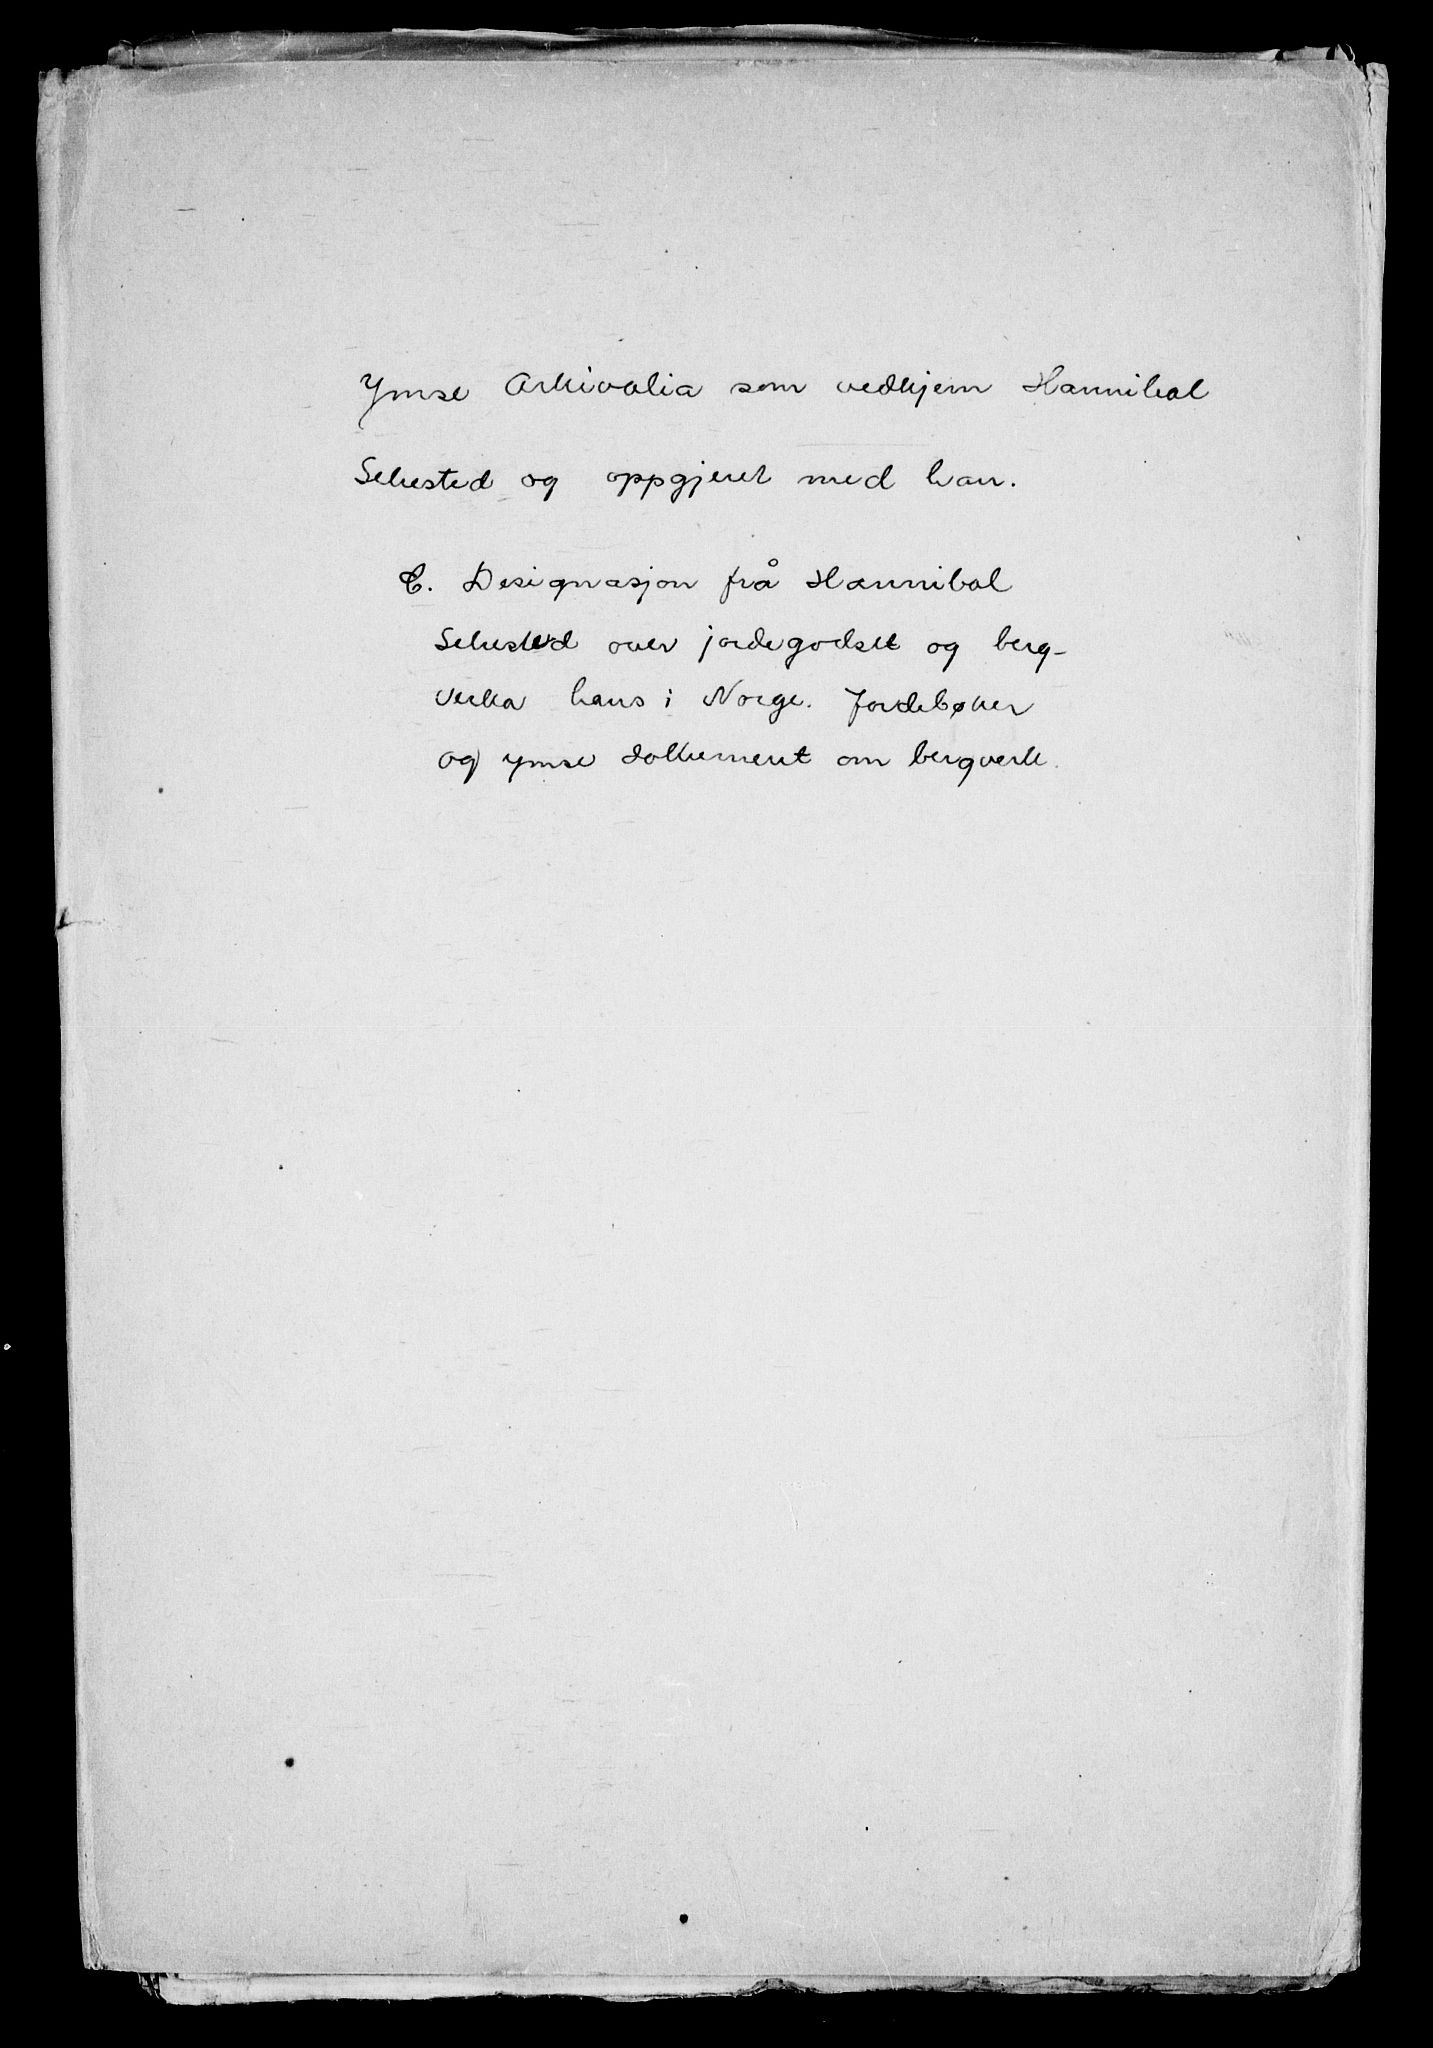 Ymse Arkivalia som vedkjem Hannibal
Sehested og oppgjeret med han.
C. Designasjon frå Hannibal
Sehested over jordegodset og berg-
verka hans i Norge. Jordebøker
og ymse dokument om bergverk.